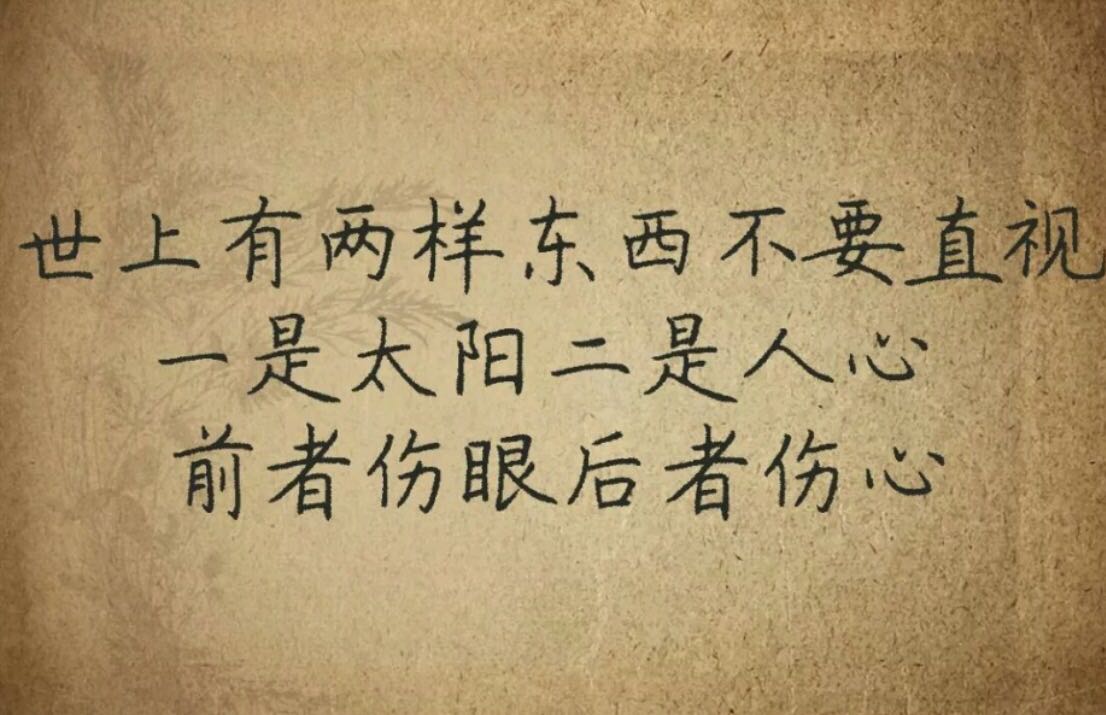 世上有两样东西不要直视
一是太阳二是人心
前者伤眼后者伤心